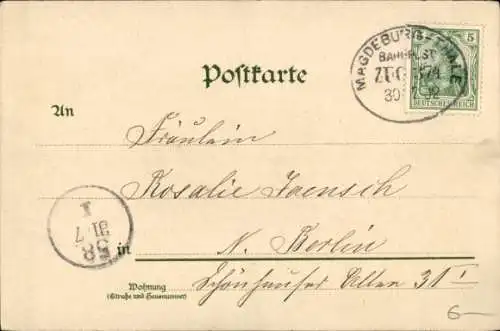 MAGDEBURG-THALE
BAHNPOST
ZUG 374
30 7 02
5
DEUTSCHES REICH
Postkarte
An
Fräulein
Rosalie Jaensch
in N. Berlin
Wohnung
(Straße und Hausnummer)
Schönhauser Allee 31 I
58
31 7
I
6-